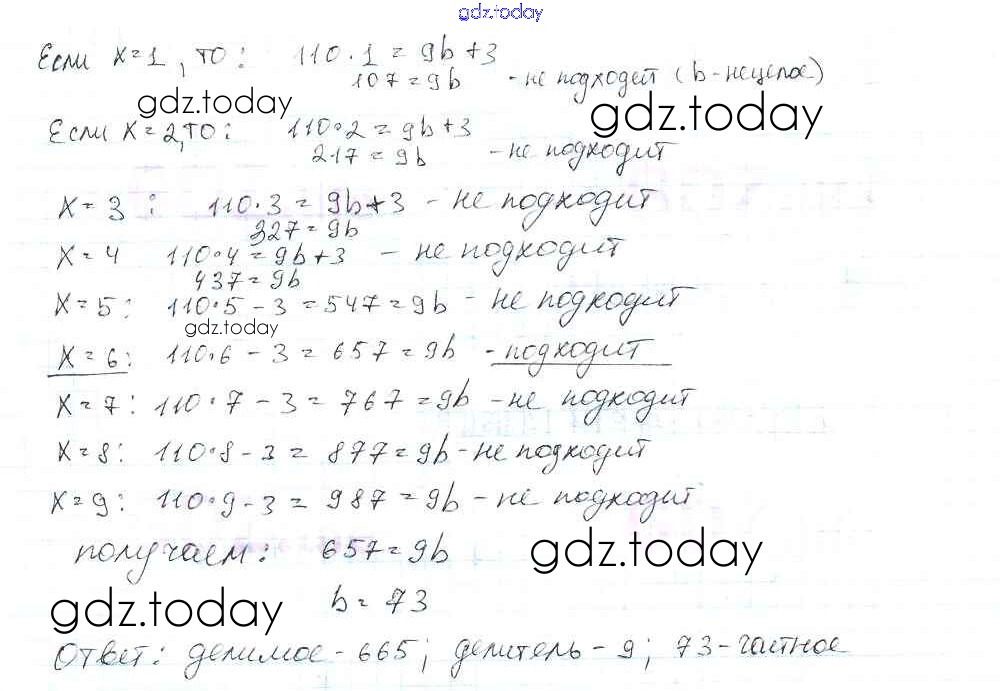 gdz.today
Если x=1, то: 110·1 = 9b+3
107 = 9b - не подходит (b-нецелое)
gdz.today gdz.today
Если x=2, то: 110·2 = 9b+3
217 = 9b - не подходит
x=3: 110·3 = 9b+3 - не подходит
327 = 9b
x=4 110·4 = 9b+3 - не подходит
437 = 9b
x=5: 110·5 - 3 = 547 = 9b - не подходит
gdz.today
x=6: 110·6 - 3 = 657 = 9b - подходит
x=7: 110·7 - 3 = 767 = 9b - не подходит
x=8: 110·8 - 3 = 877 = 9b - не подходит
x=9: 110·9 - 3 = 987 = 9b - не подходит
получаем: 657 = 9b
gdz.today
b = 73
gdz.today
Ответ: делимое - 665; делитель - 9; 73 - частное